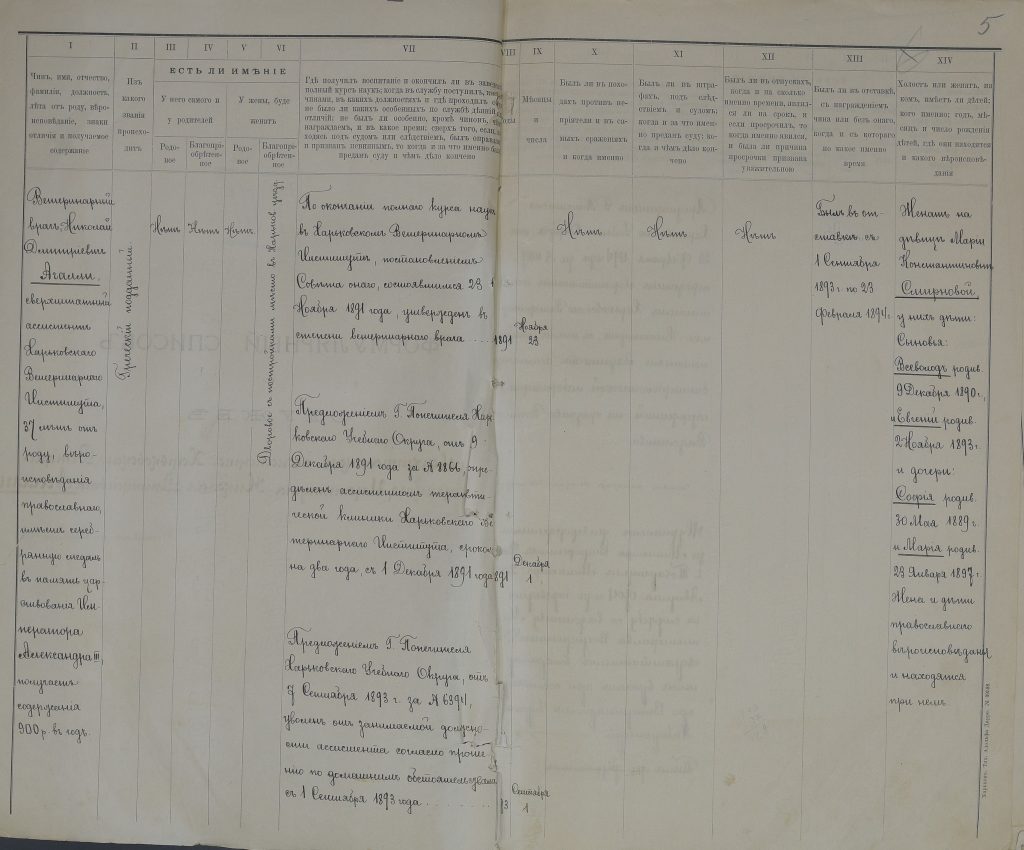 5
I
II
III
IV
V
VI
VII
VIII
IX
X
XI
XII
XIII
XIV
Чинъ, имя, отчество,
фамилія, должность,
лѣта отъ роду, вѣро-
исповѣданіе, знаки
отличія и получаемое
содержаніе
Изъ
какого
званія
происхо-
дитъ
ЕСТЬ ЛИ ИМѢНІЕ
У него самого и
у родителей
У жены, буде
женатъ
Родо-
вое
Благопрі-
обрѣтен-
ное
Родо-
вое
Благопріо-
брѣтен-
ное
Гдѣ получилъ воспитаніе и окончилъ ли въ заве
полный курсъ наукъ; когда въ службу поступилъ,
чинами, въ какихъ должностяхъ и гдѣ проходилъ
не было ли какихъ особенныхъ по службѣ дѣяній
отличій; не былъ ли особенно, кромѣ чиновъ,
награждаемъ, и въ какое время; сверхъ того, если,
ходясь подъ судомъ или слѣдствіемъ, былъ оправд
и признанъ невиннымъ, то когда и за что именно бы
преданъ суду и чѣмъ дѣло кончено
Мѣсяцы
и
числа
Былъ ли въ похо-
дахъ противъ не-
пріятеля и въ са-
мыхъ сраженіяхъ
и когда именно
Былъ ли въ штра-
фахъ, подъ слѣд-
ствіемъ и судомъ;
когда и за что имен-
но преданъ суду; ко-
гда и чѣмъ дѣло кон-
чено
Былъ ли въ отпускахъ,
когда и на сколько
именно времени, явил-
ся ли на срокъ, и
если просрочилъ, то
когда именно явился,
и была ли причина
просрочки признана
уважительною
Былъ ли въ отставкѣ,
съ награжденіемъ
чина или безъ онаго,
когда и съ котораго
по какое именно
время
Холостъ или женатъ, на
комъ, имѣетъ ли дѣтей;
кого именно; годъ, мѣ-
сяцъ и число рожденія
дѣтей, гдѣ они находятся
и какого вѣроисповѣ-
данія
Ветеринарный
врачъ Николай
Дмитріевичъ
Агалли,
сверхштатный
ассистентъ
Харьковскаго
Ветеринарнаго
Института,
37 лѣтъ отъ
роду, вѣро-
исповѣданія
православнаго,
имѣетъ сереб-
рянную медаль
въ память цар-
ствованія Им-
ператора
Александра III,
получаетъ
содержанія
900 р. въ годъ.
Греческій подданный
Нѣтъ
Нѣтъ
Нѣтъ
Дворовое съ постройками мѣсто въ Харьков. уѣзд.
По окончаніи полнаго курса наукъ
въ Харьковскомъ Ветеринарномъ
Институтѣ, постановленіемъ
Совѣта онаго, состоявшимся 23
Ноября 1891 года, утвержденъ въ
степени ветеринарнаго врача . . . 1891
Ноября
23
Предложеніемъ Г. Попечителя Харь
ковскаго Учебнаго Округа, отъ 9
Декабря 1891 года за № 8866, опре-
дѣленъ ассистентомъ терапевти-
ческой клиники Харьковскаго Ве-
теринарнаго Института, срокомъ
на два года, съ 1 Декабря 1891 года 1891
Декабря
1
Предложеніемъ Г. Попечителя
Харьковскаго Учебнаго Округа, отъ
7 Сентября 1893 г. за № 6394,
уволенъ отъ занимаемой должно-
сти ассистента согласно проше-
нію по домашнимъ обстоятельствамъ
съ 1 Сентября 1893 года . . . . . . . . 93
Сентября
1
Нѣтъ
Нѣтъ
Нѣтъ
Былъ въ от-
ставкѣ съ
1 Сентября
1893 г. по 23
Февраля 1894 г.
Женатъ на
дѣвицѣ Маріи
Константиновнѣ
Смирновой,
у нихъ дѣти:
Сыновья:
Всеволодъ родив.
9 Декабря 1890 г.,
и Евгеній родив.
2 Ноября 1893 г.
и дочери:
Софія родив.
30 Мая 1889 г.
и Марія родив.
23 Января 1897 г.
Жена и дѣти
православнаго
вѣроисповѣданія
и находятся
при немъ